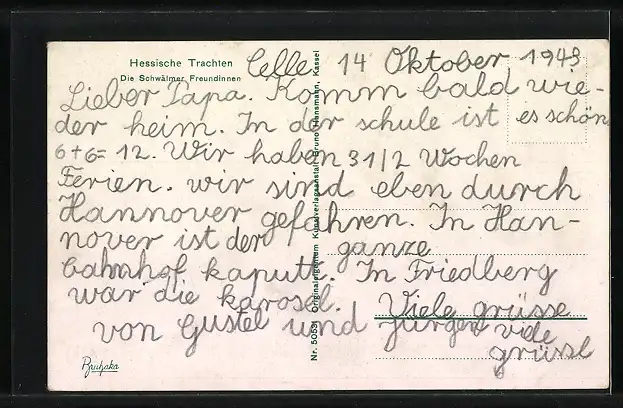 Hessische Trachten
Die Schwälmer Freundinnen
Celle 14 Oktober 1943
Lieber Papa. Komm bald wie-
der heim. In der schule ist es schön
6+6= 12. Wir haben 3 1/2 Wochen
Ferien. wir sind eben durch
Hannover gefahren. In Han-
nover ist der ganze
bahnhof kaputt. In Friedberg
war die karosel.
Viele grüsse
von Gustel und jürgen viele
grüssl
Nr. 50531 Originaleigentum Kunstverlagsanstalt Bruno Hansmann, Kassel